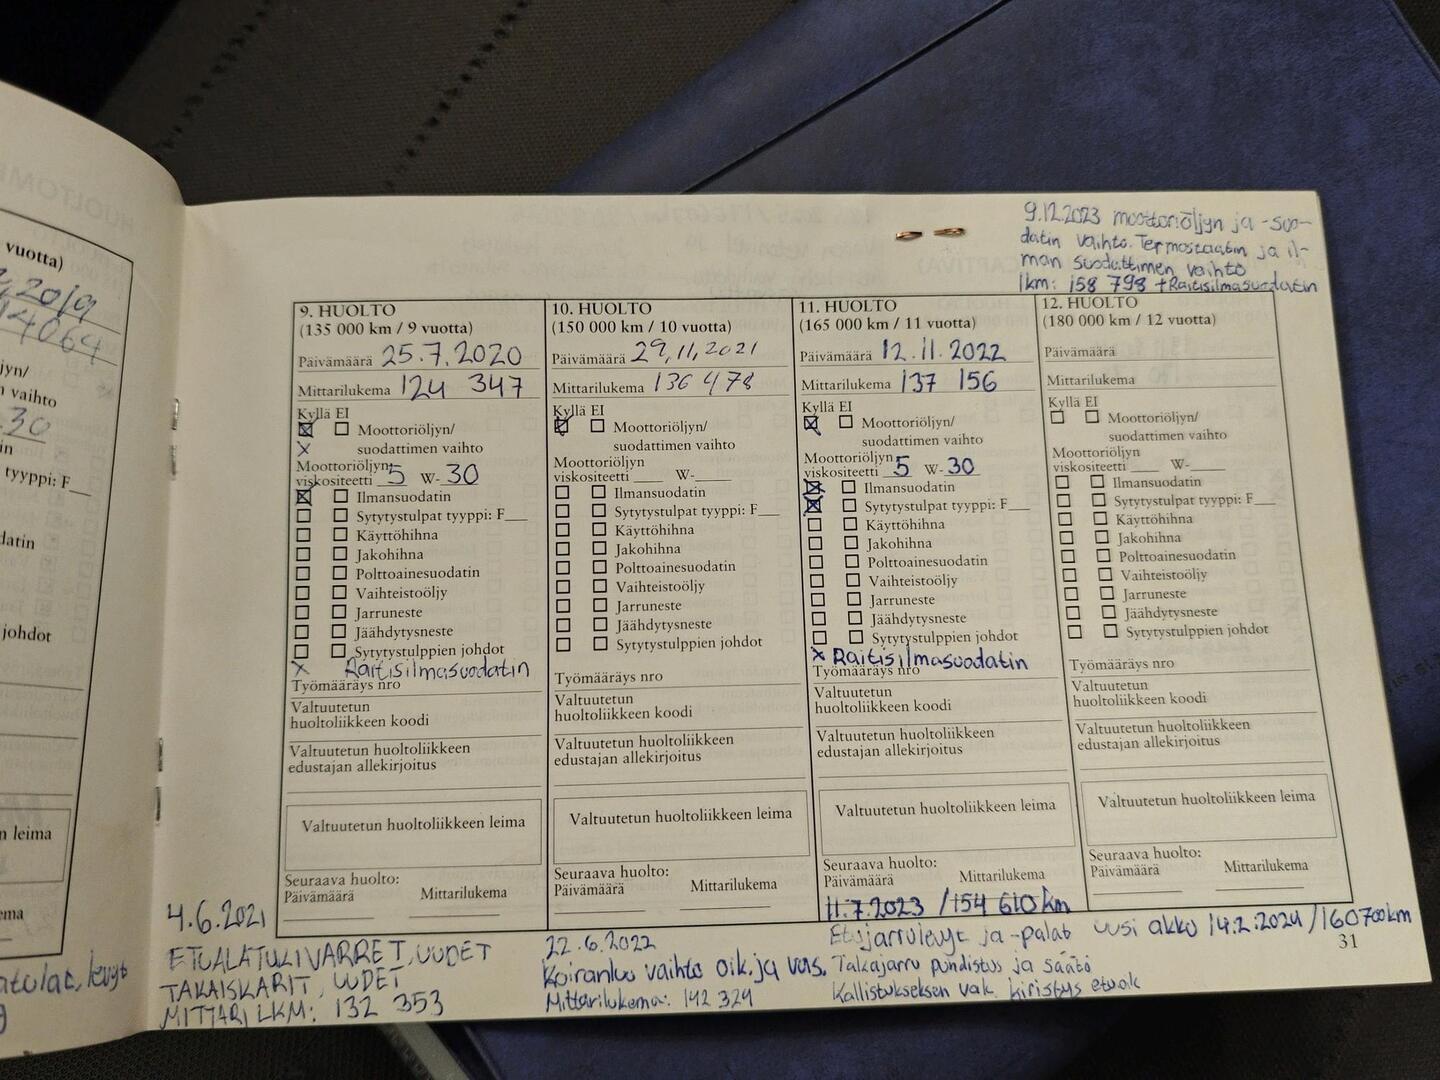 vuotta)
2019
14064
yn/
vaihto
30
in
tyyppi: F___
datin
johdot
n leima
ema
levyt
9.12.2023 moottoriöljyn ja -suo-
datin vaihto. Termostaatin ja il-
man suodattimen vaihto
lkm: 158 798 + Raitisilmasuodatin
9. HUOLTO
(135 000 km / 9 vuotta)
Päivämäärä 25.7.2020
Mittarilukema 124 347
Kyllä EI
Moottoriöljyn/
suodattimen vaihto
Moottoriöljyn
viskositeetti 5 W-30
Ilmansuodatin
Sytytystulpat tyyppi: F___
Käyttöhihna
Jakohihna
Polttoainesuodatin
Vaihteistoöljy
Jarruneste
Jäähdytysneste
Sytytystulppien johdot
x Raitisilmasuodatin
Työmääräys nro
Valtuutetun
huoltoliikkeen koodi
Valtuutetun huoltoliikkeen
edustajan allekirjoitus
Valtuutetun huoltoliikkeen leima
Seuraava huolto:
Päivämäärä Mittarilukema
10. HUOLTO
(150 000 km / 10 vuotta)
Päivämäärä 29,11,2021
Mittarilukema 136 478
Kyllä EI
Moottoriöljyn/
suodattimen vaihto
Moottoriöljyn
viskositeetti ___ W-____
Ilmansuodatin
Sytytystulpat tyyppi: F___
Käyttöhihna
Jakohihna
Polttoainesuodatin
Vaihteistoöljy
Jarruneste
Jäähdytysneste
Sytytystulppien johdot
Työmääräys nro
Valtuutetun
huoltoliikkeen koodi
Valtuutetun huoltoliikkeen
edustajan allekirjoitus
Valtuutetun huoltoliikkeen leima
Seuraava huolto:
Päivämäärä Mittarilukema
11. HUOLTO
(165 000 km / 11 vuotta)
Päivämäärä 12.11.2022
Mittarilukema 137 156
Kyllä EI
Moottoriöljyn/
suodattimen vaihto
Moottoriöljyn
viskositeetti 5 W-30
Ilmansuodatin
Sytytystulpat tyyppi: F___
Käyttöhihna
Jakohihna
Polttoainesuodatin
Vaihteistoöljy
Jarruneste
Jäähdytysneste
Sytytystulppien johdot
x Raitisilmasuodatin
Työmääräys nro
Valtuutetun
huoltoliikkeen koodi
Valtuutetun huoltoliikkeen
edustajan allekirjoitus
Valtuutetun huoltoliikkeen leima
Seuraava huolto:
Päivämäärä Mittarilukema
12. HUOLTO
(180 000 km / 12 vuotta)
Päivämäärä
Mittarilukema
Kyllä EI
Moottoriöljyn/
suodattimen vaihto
Moottoriöljyn
viskositeetti ___ W-____
Ilmansuodatin
Sytytystulpat tyyppi: F___
Käyttöhihna
Jakohihna
Polttoainesuodatin
Vaihteistoöljy
Jarruneste
Jäähdytysneste
Sytytystulppien johdot
Työmääräys nro
Valtuutetun
huoltoliikkeen koodi
Valtuutetun huoltoliikkeen
edustajan allekirjoitus
Valtuutetun huoltoliikkeen leima
Seuraava huolto:
Päivämäärä Mittarilukema
4.6.2021
ETUALATUKIVARRET, UUDET
TAKAISKARIT, UUDET
MITTARI LKM: 132 353
22.6.2022
Koiranluu vaihto oik. ja vas.
Mittarilukema: 142 324
11.7.2023 / 154 610 km
Etujarrulevyt ja -palat
Takajarru puhdistus ja säätö
Kallistuksen vak. kiristys etuoik
uusi akku 14.2.2024 / 160700km
31